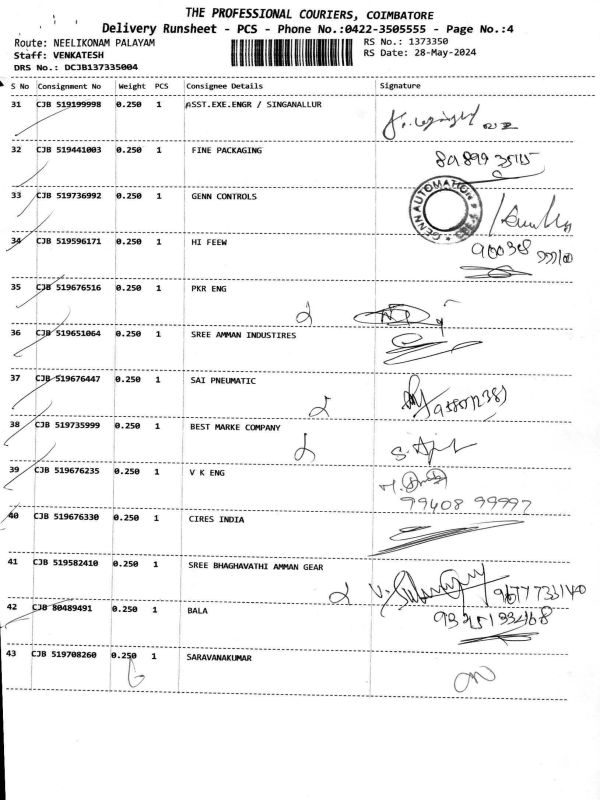 THE PROFESSIONAL COURIERS, COIMBATORE
Delivery Runsheet - PCS - Phone No.:0422-3505555 - Page No.:4
Route: NEELIKONAM PALAYAM RS No.: 1373350
Staff: VENKATESH RS Date: 28-May-2024
DRS No.: DCJB137335004
S No Consignment No Weight PCS Consignee Details Signature
31 CJB 519199998 0.250 1 ASST.EXE.ENGR / SINGANALLUR
32 CJB 519441003 0.250 1 FINE PACKAGING
33 CJB 519736992 0.250 1 GENN CONTROLS
GENN AUTOMATION
34 CJB 519596171 0.250 1 HI FEEW
35 CJB 519676516 0.250 1 PKR ENG
36 CJB 519651064 0.250 1 SREE AMMAN INDUSTIRES
37 CJB 519676447 0.250 1 SAI PNEUMATIC
38 CJB 519735999 0.250 1 BEST MARKE COMPANY
39 CJB 519676235 0.250 1 V K ENG
99408 99997
40 CJB 519676330 0.250 1 CIRES INDIA
41 CJB 519582410 0.250 1 SREE BHAGHAVATHI AMMAN GEAR
42 CJB 80489491 0.250 1 BALA
43 CJB 519708260 0.250 1 SARAVANAKUMAR